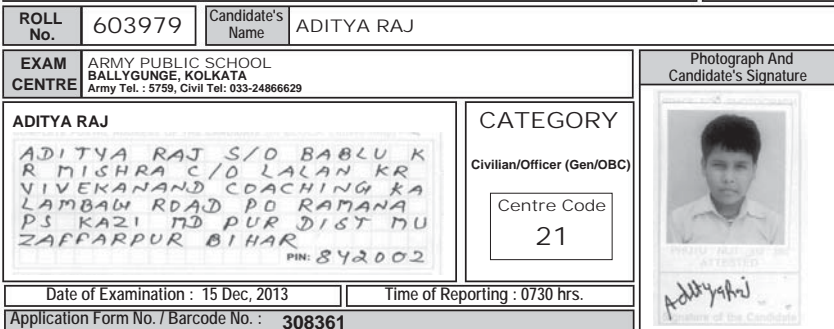 ROLL No. 603979 Candidate's Name ADITYA RAJ
EXAM CENTRE
ARMY PUBLIC SCHOOL
BALLYGUNGE, KOLKATA
Army Tel. : 5759, Civil Tel: 033-24866629
Photograph And
Candidate's Signature
ADITYA RAJ
ADITYA RAJ S/O BABLU K
R MISHRA C/O LALAN KR
VIVEKANAND COACHING KA
LAMBAGH ROAD PO RAMANA
PS KAZI MD PUR DIST MU
ZAFFARPUR BIHAR
PIN: 842002
CATEGORY
Civilian/Officer (Gen/OBC)
Centre Code
21
PHOTO NOT TO BE
ATTESTED
AdityaRaj
Signature of the Candidate
Date of Examination : 15 Dec, 2013
Time of Reporting : 0730 hrs.
Application Form No. / Barcode No. : 308361